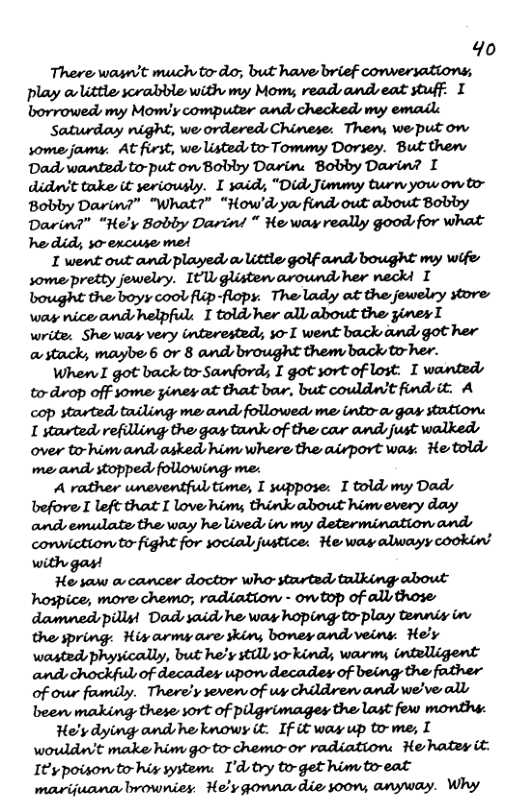 40
There wasn't much to do, but have brief conversations,
play a little scrabble with my Mom, read and eat stuff. I
borrowed my Mom's computer and checked my email.
Saturday night, we ordered Chinese. Then, we put on
some jams. At first, we listed to Tommy Dorsey. But then
Dad wanted to put on Bobby Darin. Bobby Darin? I
didn't take it seriously. I said, "Did Jimmy turn you on to
Bobby Darin?" "What?" "How'd ya find out about Bobby
Darin?" "He's Bobby Darin! " He was really good for what
he did, so excuse me!
I went out and played a little golf and bought my wife
some pretty jewelry. It'll glisten around her neck! I
bought the boys cool flip-flops. The lady at the jewelry store
was nice and helpful. I told her all about the zines I
write. She was very interested, so I went back and got her
a stack, maybe 6 or 8 and brought them back to her.
When I got back to Sanford, I got sort of lost. I wanted
to drop off some zines at that bar, but couldn't find it. A
cop started tailing me and followed me into a gas station.
I started refilling the gas tank of the car and just walked
over to him and asked him where the airport was. He told
me and stopped following me.
A rather uneventful time, I suppose. I told my Dad
before I left that I love him, think about him every day
and emulate the way he lived in my determination and
conviction to fight for social justice. He was always cookin'
with gas!
He saw a cancer doctor who started talking about
hospice, more chemo, radiation - on top of all those
damned pills! Dad said he was hoping to play tennis in
the spring. His arms are skin, bones and veins. He's
wasted physically, but he's still so kind, warm, intelligent
and chockful of decades upon decades of being the father
of our family. There's seven of us children and we've all
been making these sort of pilgrimages the last few months.
He's dying and he knows it. If it was up to me, I
wouldn't make him go to chemo or radiation. He hates it.
It's poison to his system. I'd try to get him to eat
marijuana brownies. He's gonna die soon, anyway. Why